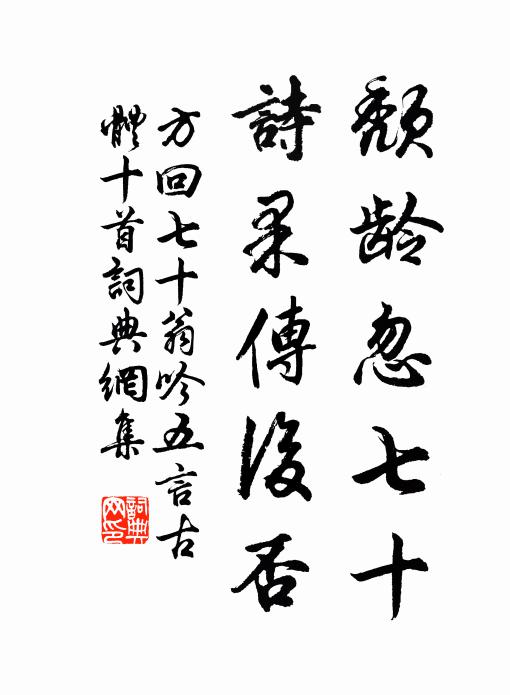 頹齡忽七十
詩果傳後否
方回七十翁吟五言古
體十首詞典網集
詞典
网印